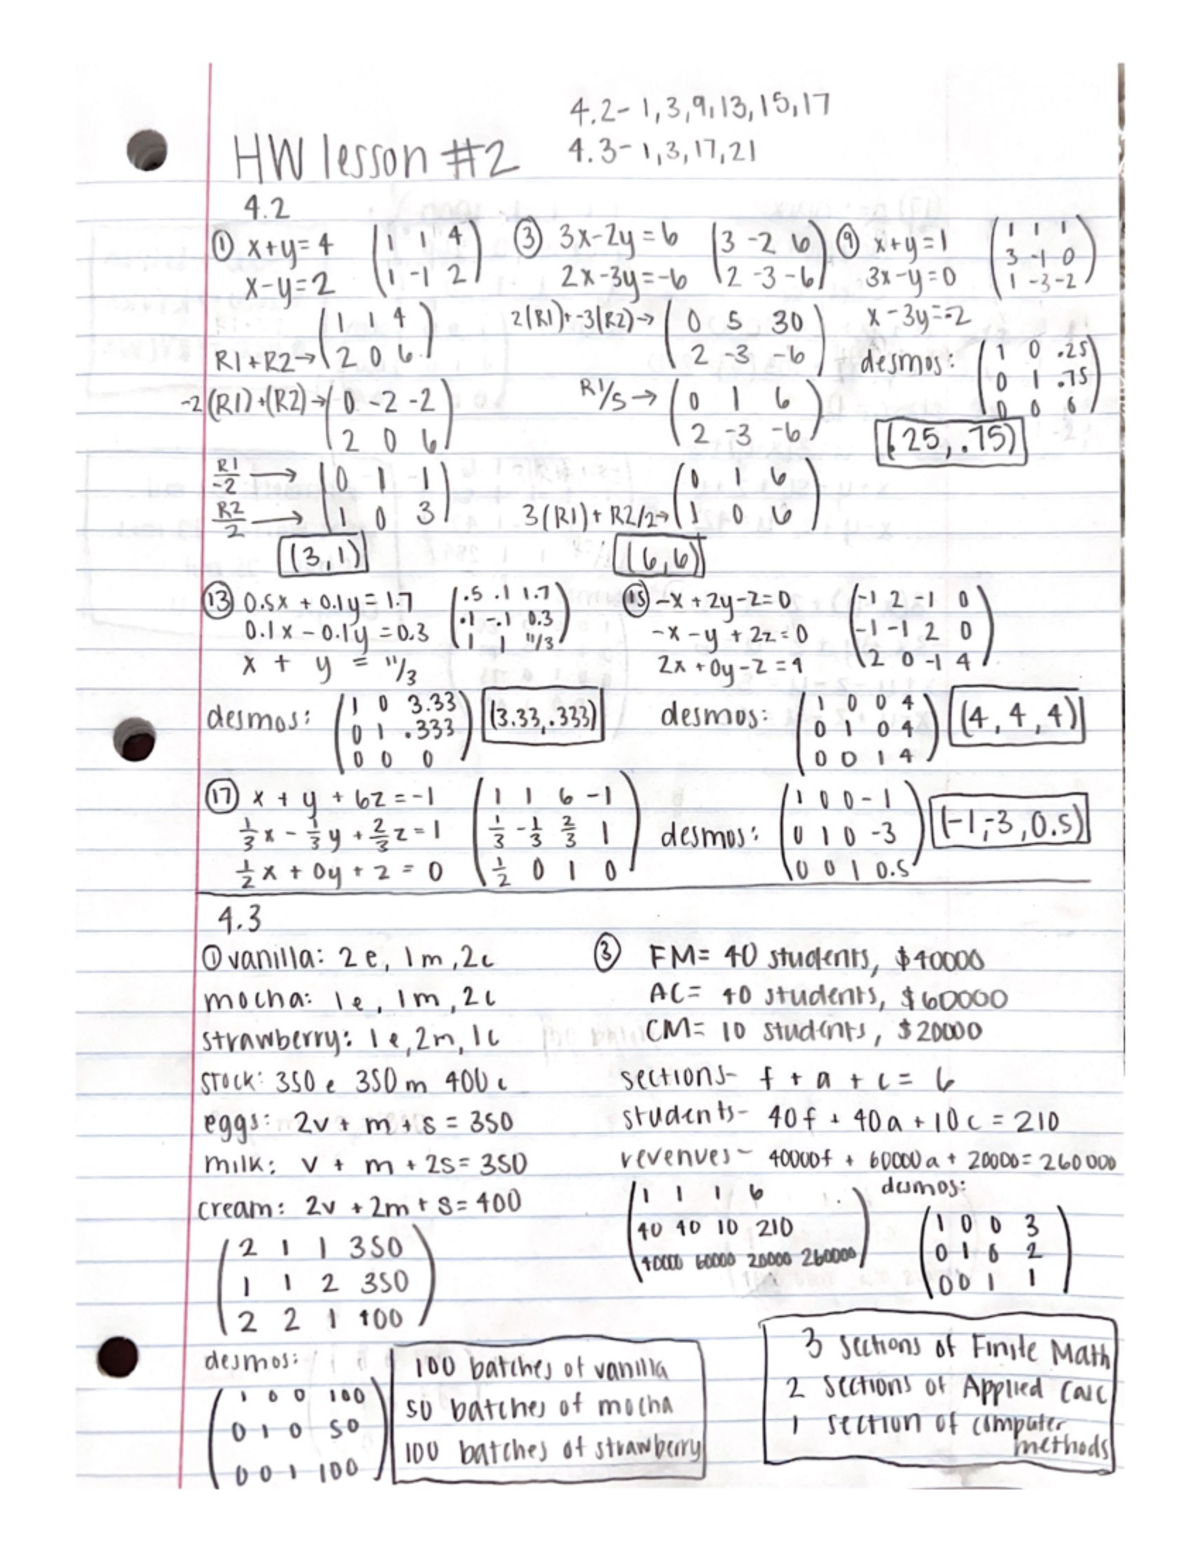 4.2- 1,3,9,13,15,17
HW lesson #2
4.3- 1,3,17,21
4.2
① x+y=4 (1 1 4
x-y=2 1 -1 2)
R1+R2→ (1 1 4
2 0 6)
-2(R1)+(R2)→ (0 -2 -2
2 0 6)
R1/-2 → (0 1 -1
R2/2 → 1 0 3)
(3,1)
③ 3x-2y=6 (3 -2 6
2x-3y=-6 2 -3 -6)
2(R1)+-3(R2)→ (0 5 30
2 -3 -6)
R1/5→ (0 1 6
2 -3 -6)
(0 1 6
3(R1)+R2/2→ 1 0 6)
(6,6)
⑨ x+y=1 (1 1 1
3x-y=0 3 -1 0
x-3y=-2 1 -3 -2)
desmos: (1 0 .25
0 1 .75
0 0 0)
(.25, .75)
⑬ 0.5x + 0.1y = 1.7 (.5 .1 1.7
0.1x - 0.1y = 0.3 .1 -.1 0.3
x + y = 11/3 1 1 11/3)
desmos: (1 0 3.33
0 1 .333
0 0 0)
(3.33,.333)
⑮ -x + 2y-z=0 (-1 2 -1 0
-x - y + 2z = 0 -1 -1 2 0
2x + 0y - z = 4 2 0 -1 4)
desmos: (1 0 0 4
0 1 0 4
0 0 1 4)
(4, 4, 4)
⑰ x + y + 6z = -1 (1 1 6 -1
1/3x - 1/3y + 2/3z = 1 1/3 -1/3 2/3 1
1/2x + 0y + z = 0 1/2 0 1 0)
desmos: (1 0 0 -1
0 1 0 -3
0 0 1 0.5)
(-1,-3,0.5)
4.3
① vanilla: 2e, 1m, 2c
mocha: 1e, 1m, 2c
strawberry: 1e, 2m, 1c
stock: 350e 350m 400c
eggs: 2v + m + s = 350
milk: v + m + 2s = 350
cream: 2v + 2m + s = 400
(2 1 1 350
1 1 2 350
2 2 1 400)
desmos:
(1 0 0 100
0 1 0 50
0 0 1 100)
100 batches of vanilla
50 batches of mocha
100 batches of strawberry
③ FM= 40 students, $40000
AC= 40 students, $60000
CM= 10 students, $20000
sections- f + a + c = 6
students- 40f + 40a + 10c = 210
revenues- 40000f + 60000a + 20000 = 260000
(1 1 1 6
40 40 10 210
40000 60000 20000 260000)
desmos:
(1 0 0 3
0 1 0 2
0 0 1 1)
3 Sections of Finite Math
2 Sections of Applied Calc
1 section of computer
methods